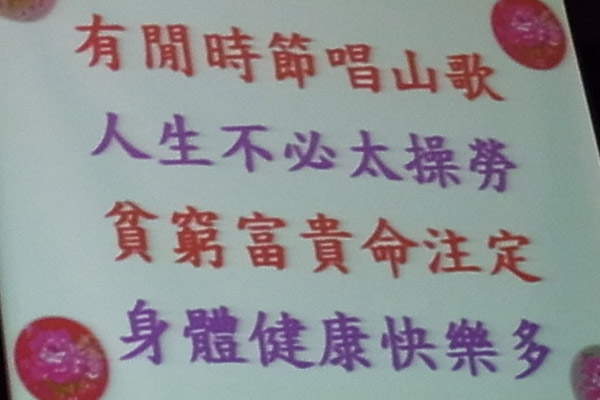 有閒時節唱山歌
人生不必太操勞
貧窮富貴命注定
身體健康快樂多